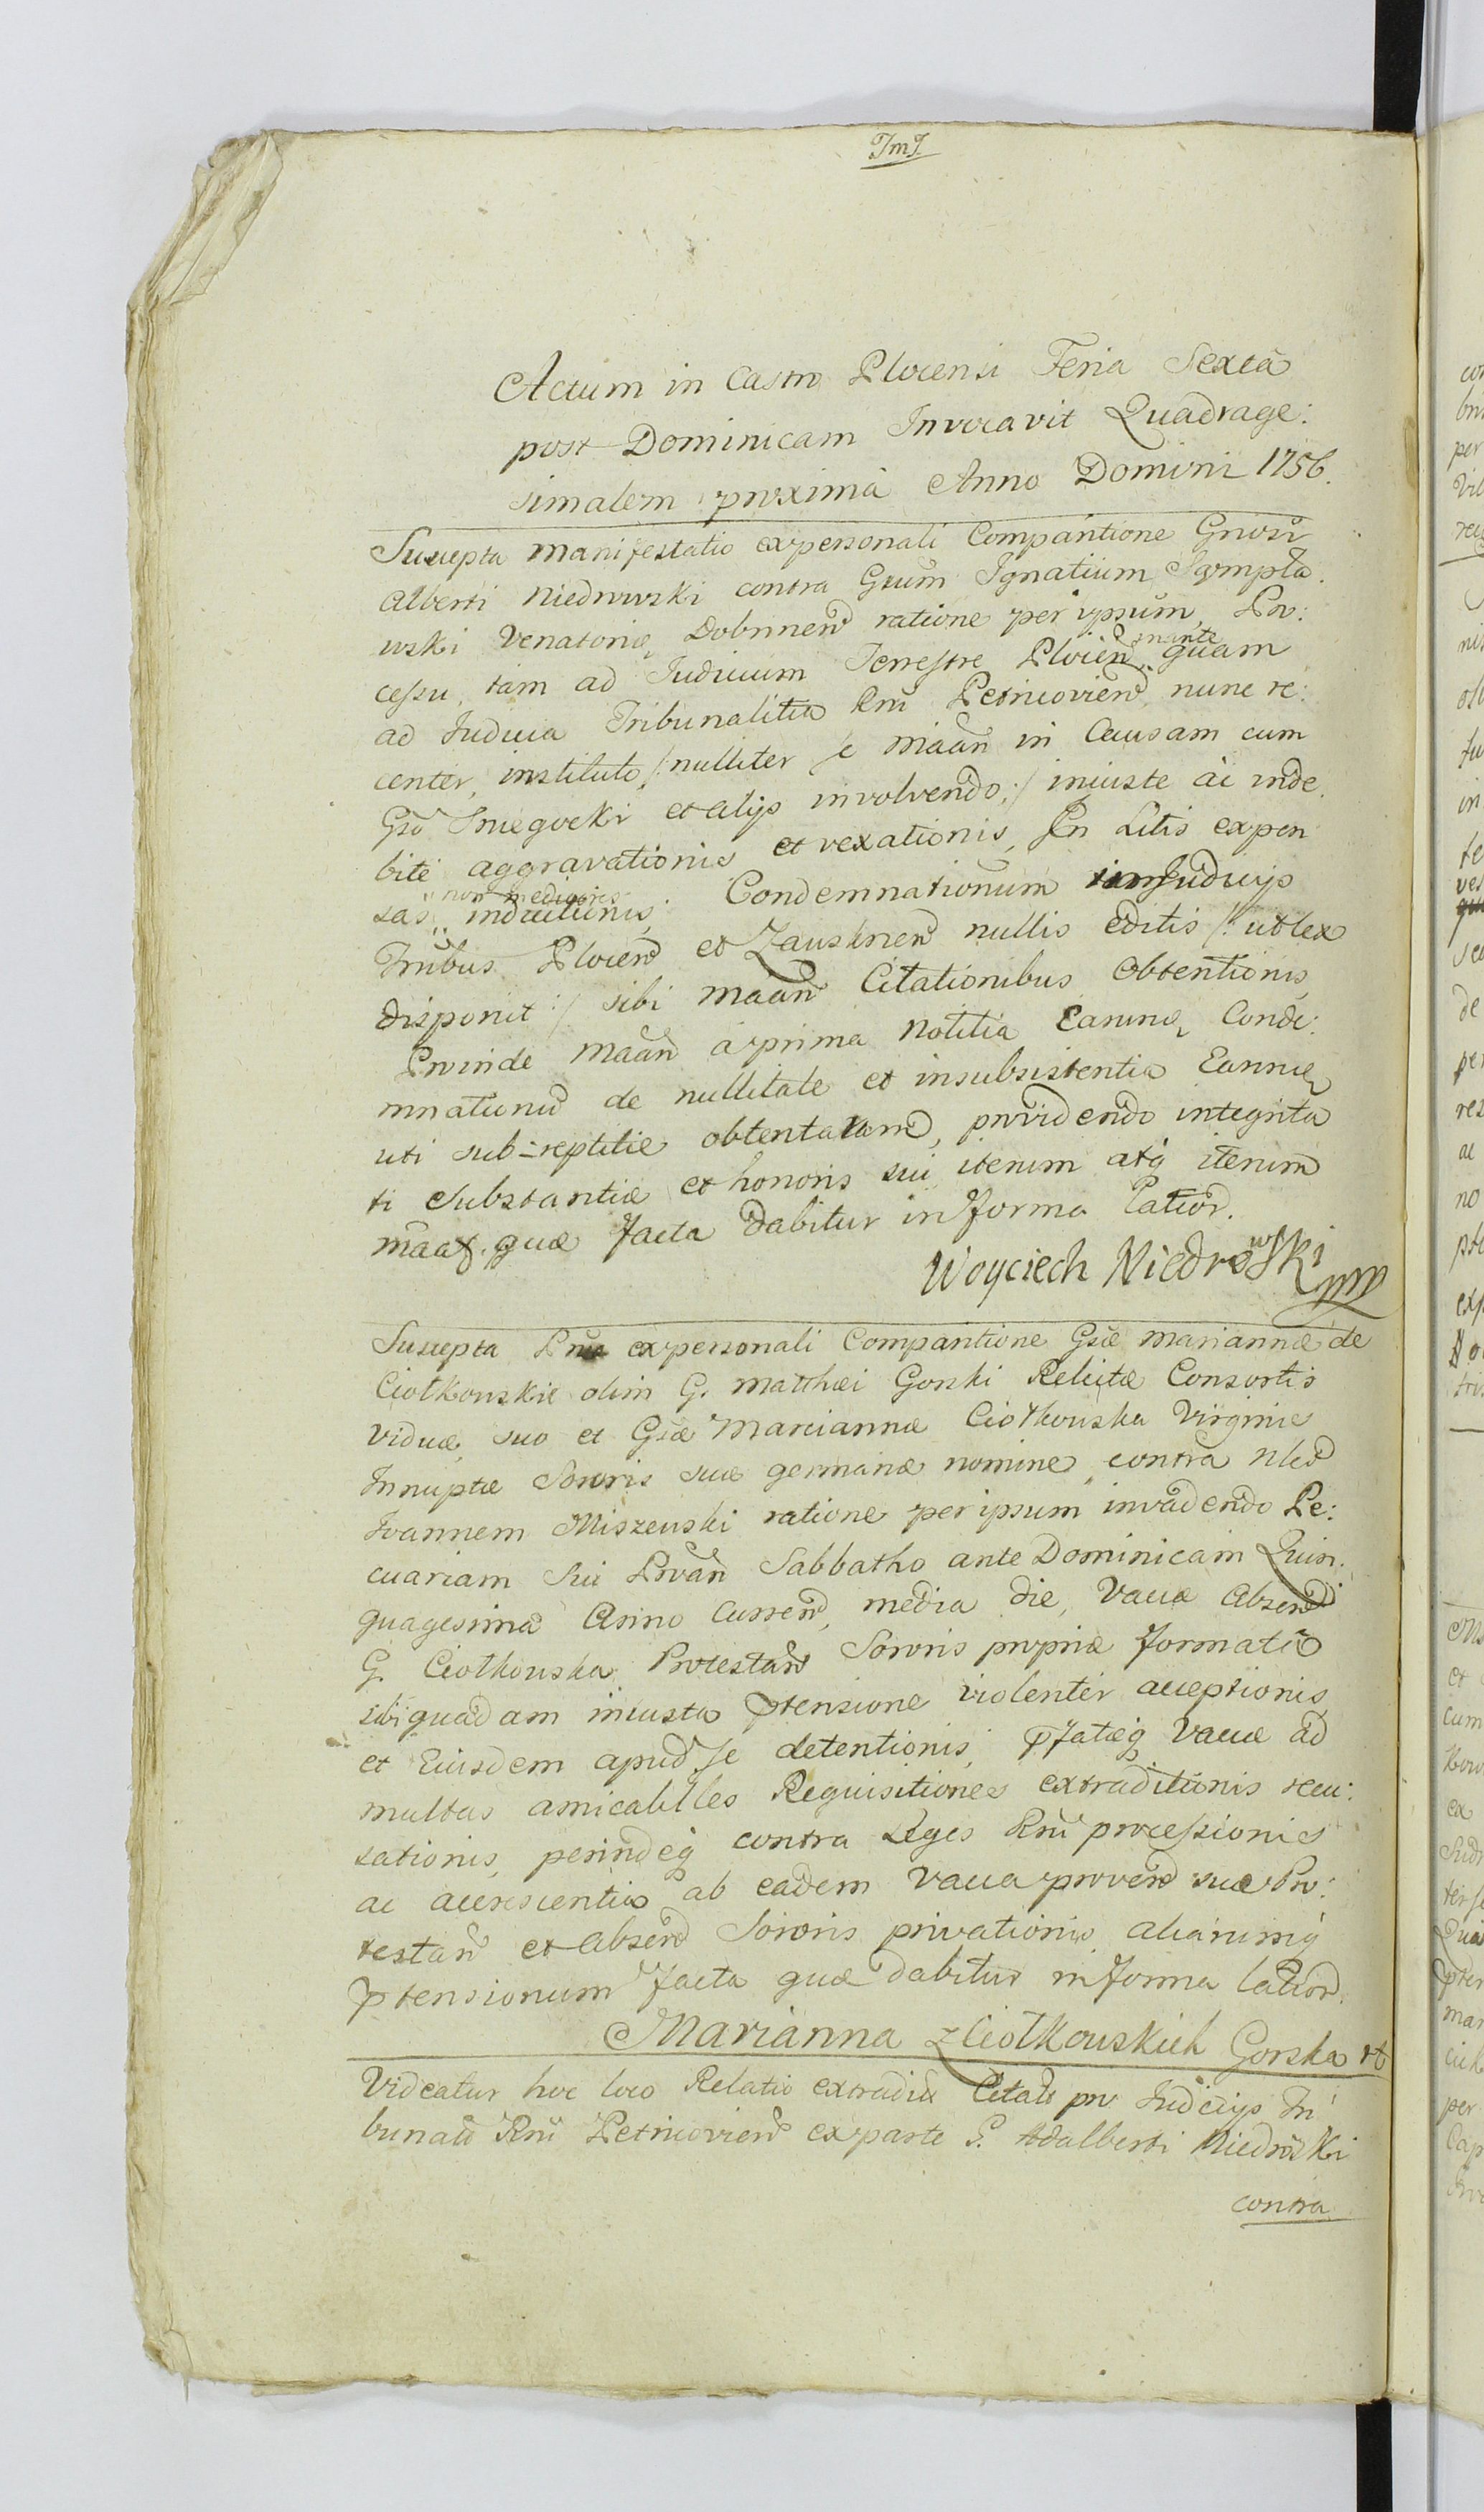 JmJ
Actum in Castro Plocensi Feria Sexta
post Dominicam Invocavit Quadrage:
simalem proxima Anno Domini 1756.
Suscepta manifestatio ex personali Comparitione Gnosi
Alberti Niedrowski contra Gsum Ignatium Sęmpła.
wski Venatoris Dobrinen ratione per ipsum, Pro:
cessu, tam ad Iudicium Terrestre Plocen quam
ad Iudicia Tribunalitia Rni Petricovien nunc re:
center, instituto /: nulliter se maan in Causam cum
Gso Sniegocki et alijs involvendo :/ iniuste ac inde
bite aggravationis et vexationis, In Litis expen
non mediocris
sas inductionis, Condemnationum in Iudicijs
Tribus Plocen et Zauskrnen nullis editis /: ut lex
disponit :/ sibi maan Citationibus Obtentionis
Proinde maan a prima notitia Earum Conde:
mnationu de nullitate et insubsistentia Earum
uti sub-reptitie obtentarum, providendo integrita
ti substantiæ et honoris sui iterum atq iterum
maat. quæ facta dabitur in forma Latior.
Woyciech Niedrowski mp
Suscepta Prna ex personali Comparitione Gsæ Mariannæ de
Ciołkowskie olim G. Matthæi Gorski Relictæ Consortis
Viduæ, suo et Gsæ Marciannæ Ciołkowska Virginis
Innuptæ Sororis suæ germanæ nomine, contra Nlem
Ioannem Miszewski ratione per ipsum invadendo Pe:
cuariam sui Prvan Sabbatho ante Dominicam Quin:
quagesima Anno Curren, media die, Vaccæ Absen
G. Ciołkowska Protestan Sororis propriæ formata
sibi quadam iniusta ptensione violenter acceptionis
et Eiusdem apud se detentionis, pfatæq Vaccæ ad
multas amicabiles Requisitiones extraditionis recu:
sationis, perindeq contra Leges Rni processionis
ac accrescentia ab eadem Vacca proven suæ Pro:
testan et Absen Sororis privationis aliarumq
ptensionum facta quæ dabitur in forma Latior.
Marianna z Ciołkowskich Gorska
Videatur hoc loco Relatio extradita Citatis pro Iudicijs Tri
bunalis Rni Petricovien ex parte G. Adalberti Niedroski
contra